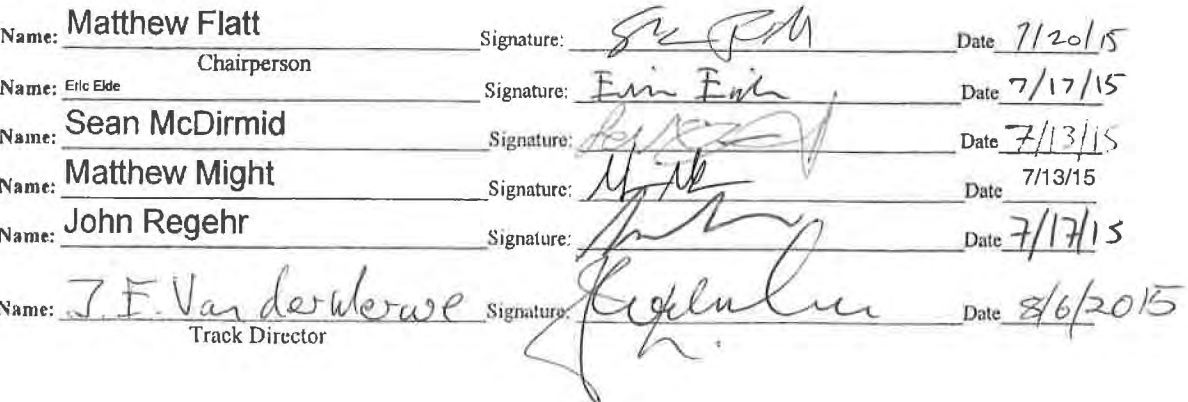 Name: Matthew Flatt Signature: Date 7/20/15
Chairperson
Name: Eric Eide Signature: Date 7/17/15
Name: Sean McDirmid Signature: Date 7/13/15
Name: Matthew Might Signature: Date 7/13/15
Name: John Regehr Signature: Date 7/17/15
Name: J.E. Van der Merwe Signature: Date 8/6/2015
Track Director